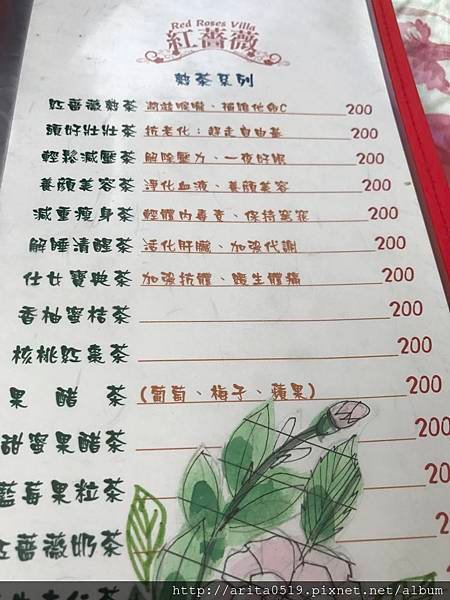 Red Roses Villa
紅薔薇
熱茶系列
紅薔薇熱茶 潤筱喉嚨、補維他命C 200
頭好壯壯茶 抗老化；趕走自由基 200
輕鬆減壓茶 解除壓力、一夜好眠 200
養顏美容茶 淨化血液、養顏美容 200
減重瘦身茶 輕體內毒素、保持窈窕 200
解睡清醒茶 活化肝臟、加強代謝 200
仕女寶典茶 加強抗體、緩生體痛 200
香柚蜜桔茶 200
核桃紅棗茶 200
果醋茶 (葡萄、梅子、蘋果) 200
甜蜜果醋茶 200
藍莓果粒茶 20
紅薔薇奶茶 2
http://arita0519.pixnet.net/album